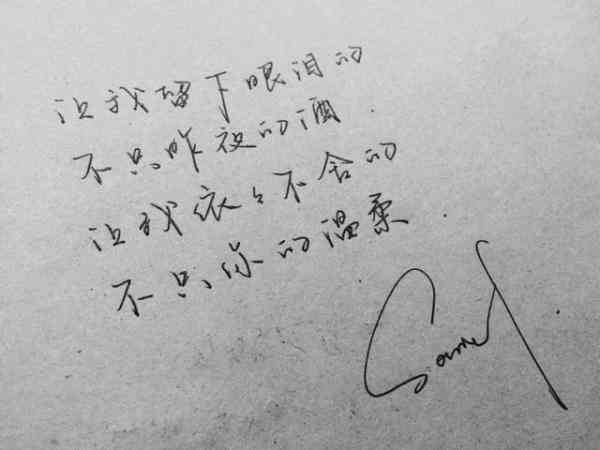 让我留下眼泪的
不只昨夜的酒.
让我依々不舍的
不只你的温柔.